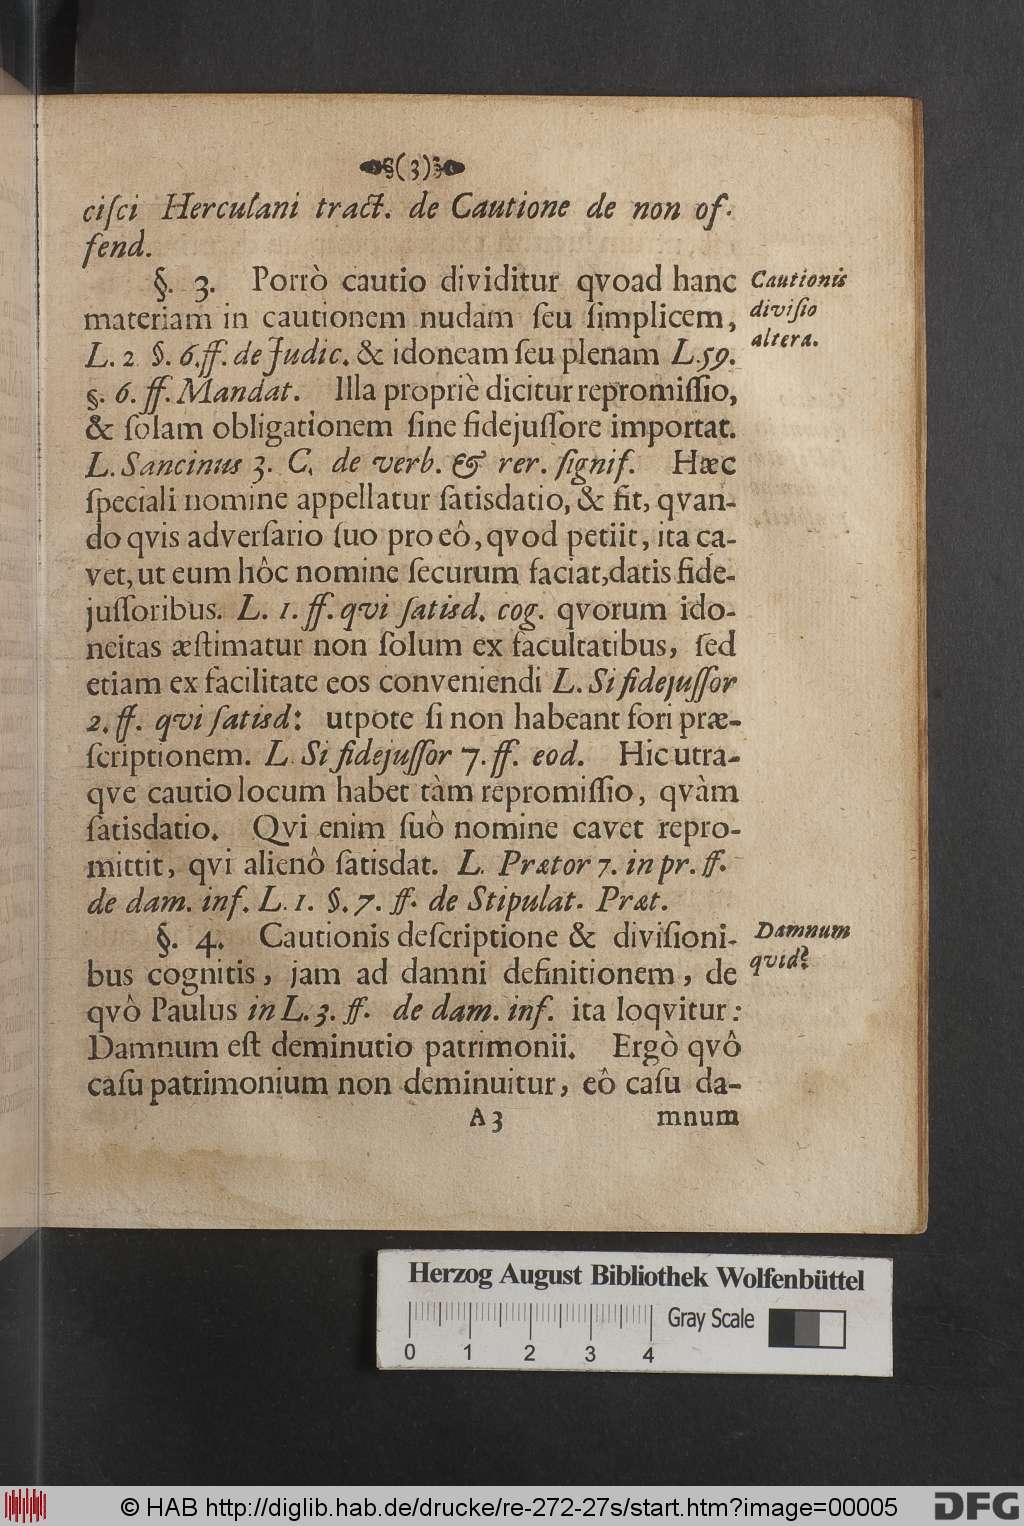 (3)
ciſci Herculani tract. de Cautione de non of-
fend.
§. 3. Porrò cautio dividitur qvoad hanc
materiam in cautionem nudam ſeu ſimplicem,
L. 2 §. 6. ff. de Judic. & idoneam ſeu plenam L. 59.
§. 6. ff. Mandat. Illa propriè dicitur repromiſſio,
& ſolam obligationem ſine fidejuſſore importat.
L. Sancinus 3. C. de verb. & rer. ſignif. Hæc
ſpeciali nomine appellatur ſatisdatio, & fit, qvan-
do qvis adverſario ſuo pro eô, qvod petiit, ita ca-
vet, ut eum hôc nomine ſecurum faciat, datis fide-
juſſoribus. L. 1. ff. qvi ſatisd. cog. qvorum ido-
neitas æſtimatur non ſolum ex facultatibus, ſed
etiam ex facilitate eos conveniendi L. Si fidejuſſor
2. ff. qvi ſatisd: utpote ſi non habeant fori præ-
ſcriptionem. L. Si fidejuſſor 7. ff. eod. Hic utra-
qve cautio locum habet tàm repromiſſio, qvàm
ſatisdatio. Qvi enim ſuô nomine cavet repro-
mittit, qvi alienô ſatisdat. L. Prætor 7. in pr. ff.
de dam. inf. L. 1. §. 7. ff. de Stipulat. Præt.
§. 4. Cautionis deſcriptione & diviſioni-
bus cognitis, jam ad damni definitionem, de
qvô Paulus in L. 3. ff. de dam. inf. ita loqvitur:
Damnum eſt deminutio patrimonii. Ergò qvô
caſu patrimonium non deminuitur, eô caſu da-
A 3 mnum
Cautionis
diviſio
altera.
Damnum
qvid?
Herzog August Bibliothek Wolfenbüttel
Gray Scale
0 1 2 3 4
© HAB http://diglib.hab.de/drucke/re-272-27s/start.htm?image=00005
DFG